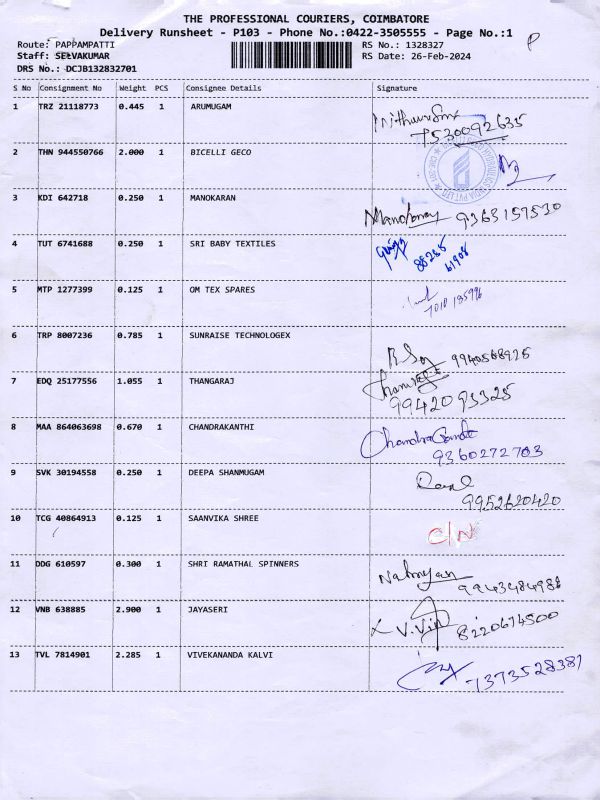 THE PROFESSIONAL COURIERS, COIMBATORE
Delivery Runsheet - P103 - Phone No.:0422-3505555 - Page No.:1
Route: PAPPAMPATTI RS No.: 1328327 P
Staff: SELVAKUMAR RS Date: 26-Feb-2024
DRS No.: DCJB132832701
S No Consignment No Weight PCS Consignee Details Signature
1 TRZ 21118773 0.445 1 ARUMUGAM
7530092635
2 THN 944550766 2.000 1 BICELLI GECO
3 KDI 642718 0.250 1 MANOKARAN
Manoharan 9363159530
4 TUT 6741688 0.250 1 SRI BABY TEXTILES
88255
61908
5 MTP 1277399 0.125 1 OM TEX SPARES
6 TRP 8007236 0.785 1 SUNRAISE TECHNOLOGEX
9940568925
7 EDQ 25177556 1.055 1 THANGARAJ
9942093325
8 MAA 864063698 0.670 1 CHANDRAKANTHI
9360272703
9 SVK 30194558 0.250 1 DEEPA SHANMUGAM
9952620420
10 TCG 40864913 0.125 1 SAANVIKA SHREE
C/N
11 DDG 610597 0.300 1 SHRI RAMATHAL SPINNERS
9943484988
12 VNB 638885 2.900 1 JAYASERI
8220674500
13 TVL 7814901 2.285 1 VIVEKANANDA KALVI
7373528381